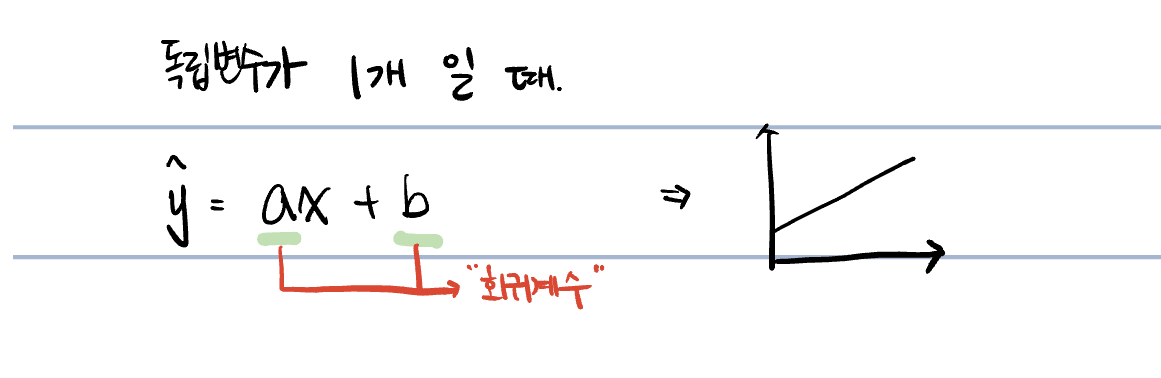 독립변수가 1개 일 때.
ŷ = ax + b ⇒
"회귀계수"